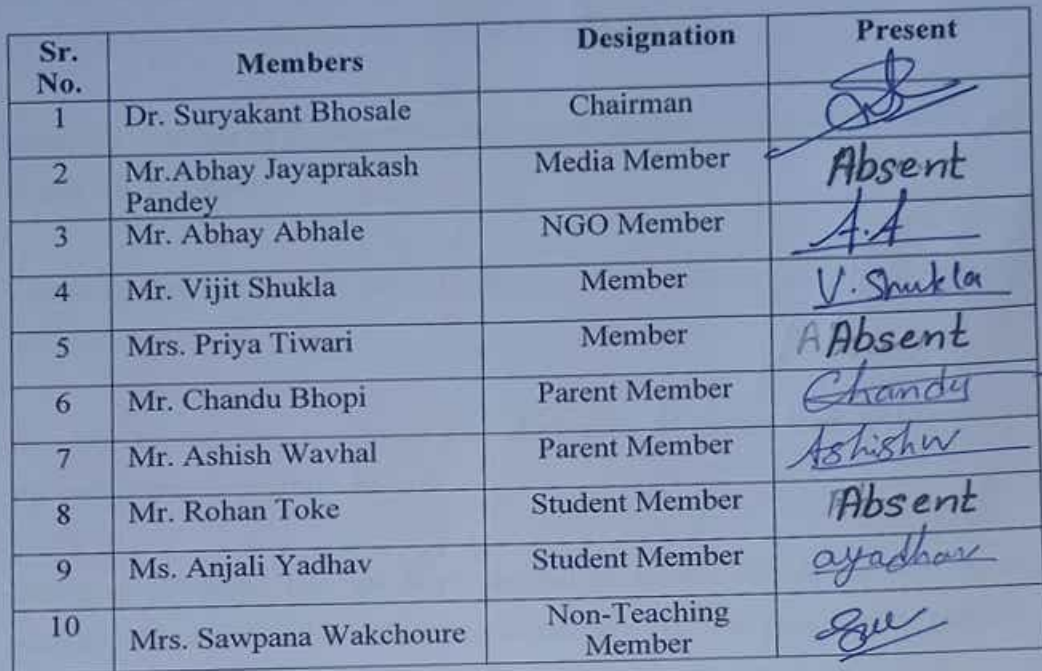 Sr. No. Members Designation Present
1 Dr. Suryakant Bhosale Chairman
2 Mr.Abhay Jayaprakash Pandey Media Member Absent
3 Mr. Abhay Abhale NGO Member A.A
4 Mr. Vijit Shukla Member V. Shukla
5 Mrs. Priya Tiwari Member Absent
6 Mr. Chandu Bhopi Parent Member Chandu
7 Mr. Ashish Wavhal Parent Member Ashishw
8 Mr. Rohan Toke Student Member Absent
9 Ms. Anjali Yadhav Student Member ayadhav
10 Mrs. Sawpana Wakchoure Non-Teaching Member